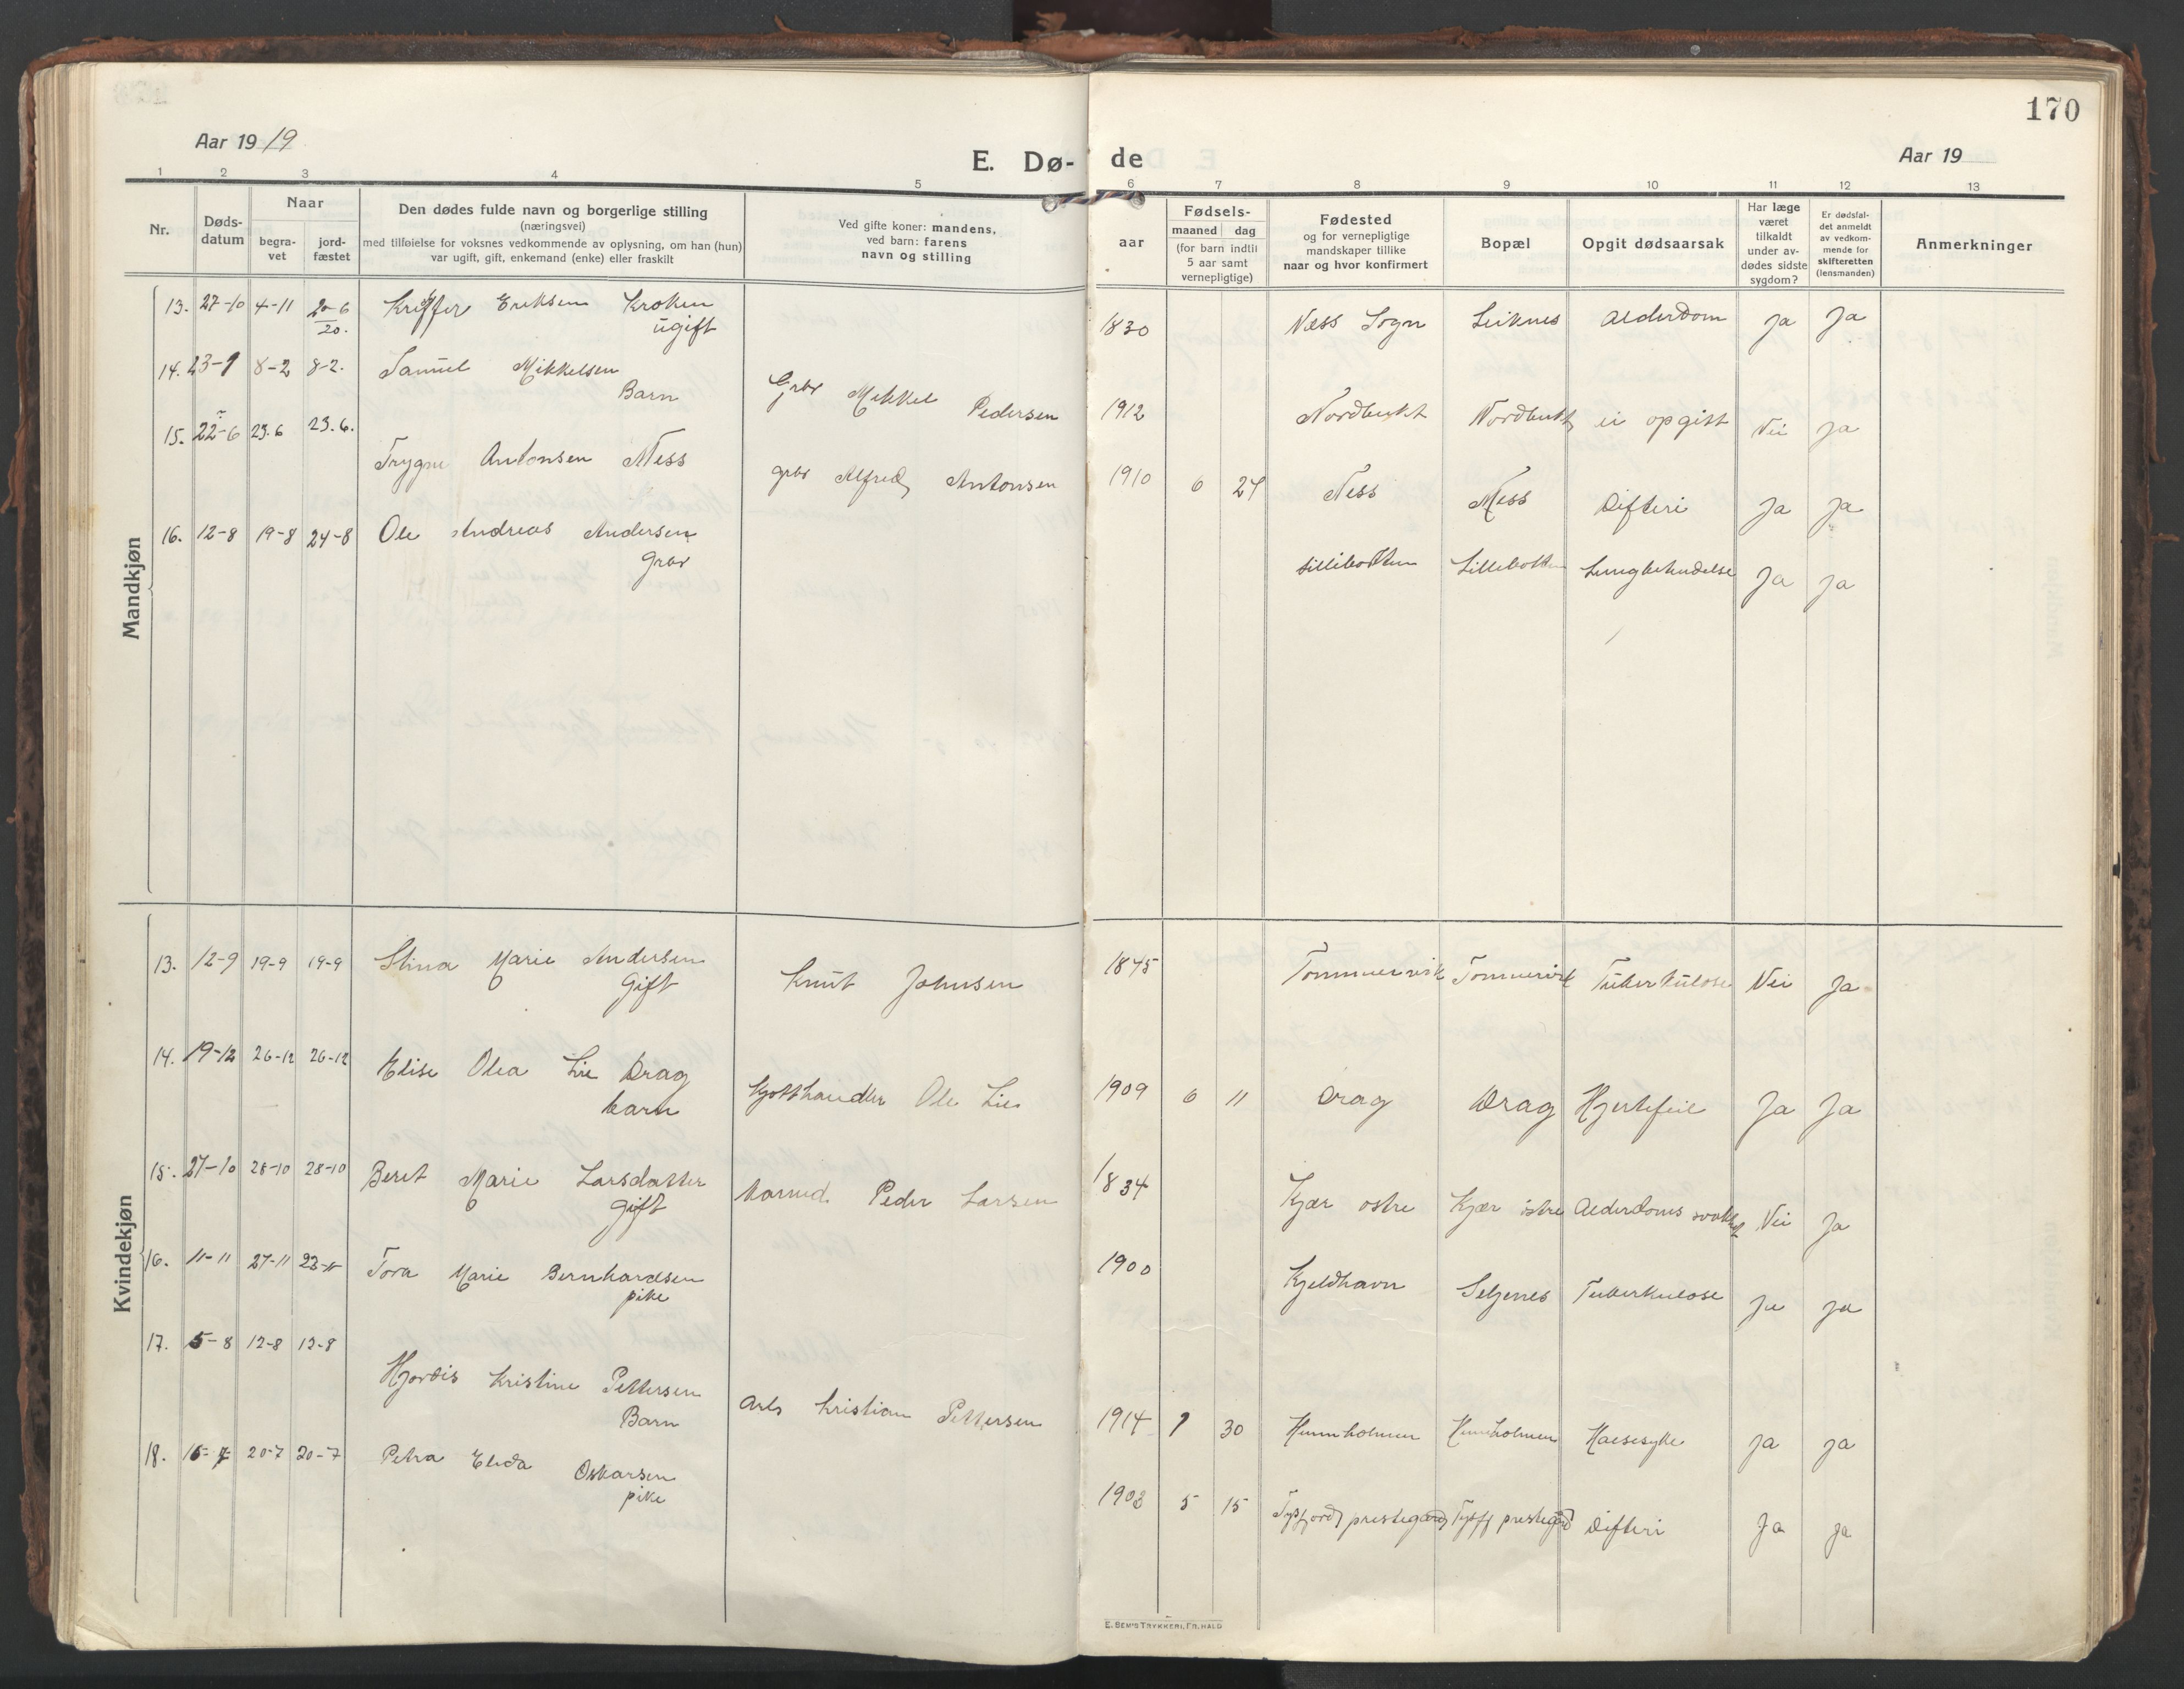 170
Aar 19 19
E. Dø- de
Aar 19
1 2 3 4 5 6 7 8 9 10 11 12 13
Nr.
Døds-
datum
Naar
begra-
vet
jord-
fæstet
Den dødes fulde navn og borgerlige stilling
(næringsvei)
med tilføielse for voksnes vedkommende av oplysning, om han (hun)
var ugift, gift, enkemand (enke) eller fraskilt
Ved gifte koner: mandens,
ved barn: farens
navn og stilling
aar
Fødsels-
maaned dag
(for barn indtil
5 aar samt
vernepligtige)
Fødested
og for vernepligtige
mandskaper tillike
naar og hvor konfirmert
Bopæl
Opgit dødsaarsak
Har læge
været
tilkaldt
under av-
dødes sidste
sygdom?
Er dødsfal-
det anmeldt
av vedkom-
mende for
skifteretten
(lensmanden)
Anmerkninger
Mandkjøn
13. 27-10 4-11 20-6 Eriksen Kroken 1830 Næss Sogn Leiknes Alderdom Ja Ja
20. ugift
14. 23-9 8-2 8-2. Samuel Mikkelsen
Barn Grbr Mikkel Pedersen 1912 Nordbukt Nordbukt ei opgitt Nei Ja
15. 22-6 23.6 23.6.
Trygve Antonsen Ness grbr Alfred Antonsen 1910 6 24 Ness Ness Difteri Ja Ja
16. 12-8 19-8 24-8 Ole Andreas Andersen Lillebotten Lillebotten Ja Ja
Grbr
Kvindekjøn
13. 12-9 19-9 19-9 Stina Marie Andersen Knut Johnsen 1845 Tommervik Tuberkulose Nei Ja
Gift
14. 19-12 26-12 26-12 Elise Olea Lie Drag Kjøtthandler Ole Lie 1909 6 11 Drag Drag Hjertefeil Ja Ja
barn
15. 27-10 28-10 28-10 Beret Marie Larsdatter Peder Larsen 1834 Kjær østre Kjær østre Alderdoms Nei Ja
gift
16. 11-11 27-11 Tora Marie Bernhardsen 1900 Kjeldhavn Seljenes Tuberkulose Ja Ja
pike
17. 5-8 12-8 12-8
Hjørdis Kristine Pettersen Arb Kristian Pettersen 1914 9 30 Hunnholmen Hunnholmen Ja Ja
Barn
18. 20-7 20-7 Petra Elida Oskarsen 1903 5 15 Tysfjord prestegaard Tysfj prestegård Difteri Ja Ja
pike
E. SEM'S TRYKKERI, FR. HALD